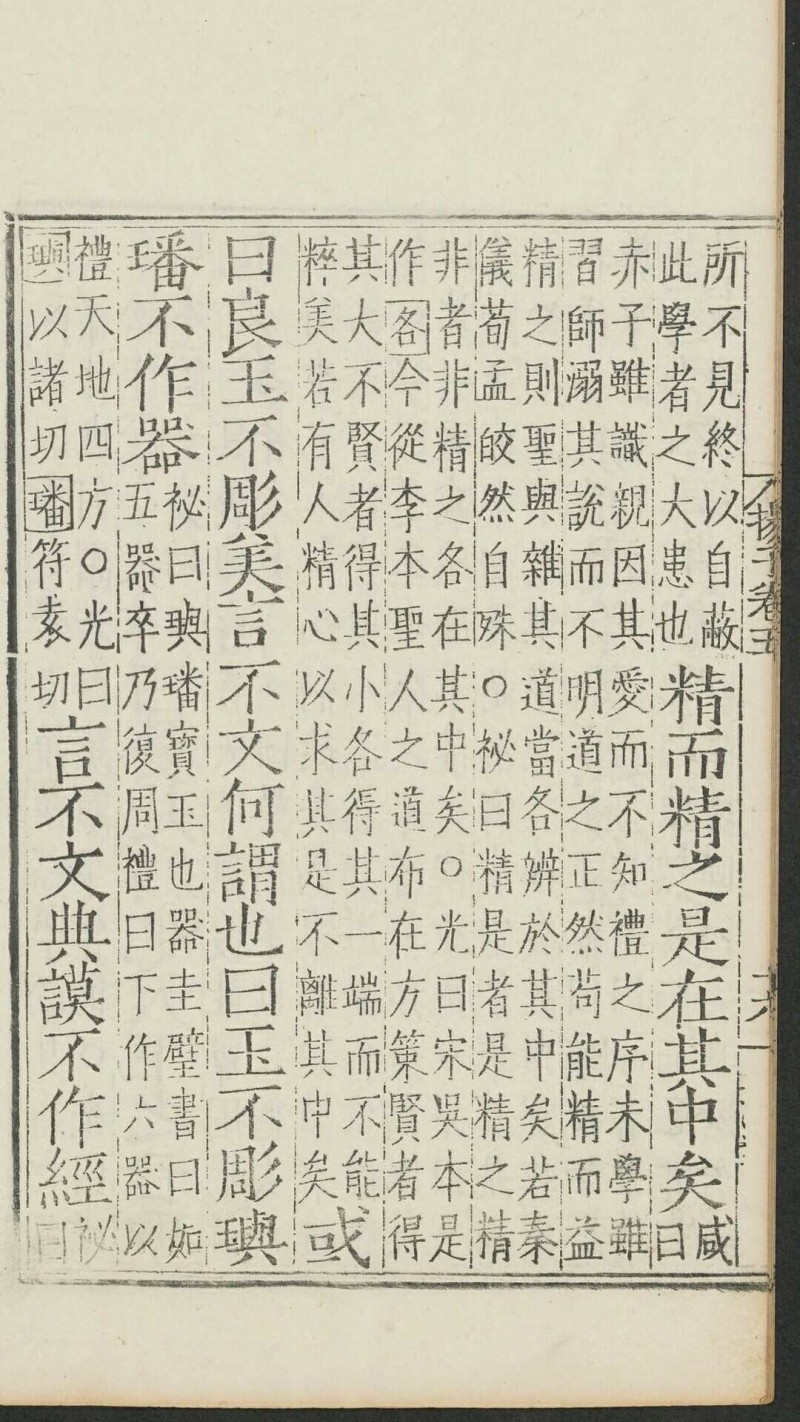 揚子卷五
六
所不見終以自蔽
此學者之大患也
精而精之是在其中矣
咸
曰
赤子雖識親因其愛而不知禮之序未學雖
習師溺其說而不明道之正然苟能精而益
精之則聖與雜其道當各辨於其中矣若秦
儀荀孟皎然自殊○祕曰精是者是精之精
非者非精之各在其中矣○光曰宋吳本是
作各今從李本聖人之道布在方策賢者得
其大不賢者得其小各得其一端而不能
粹美若有人精心以求其是不離其中矣
或
曰良玉不彫美言不文何謂也曰玉不彫璵
璠不作器
祕曰璵璠寶玉也器圭璧書曰如
五器卒乃復周禮曰下作六器以
禮天地四方○光曰
璵以諸切璠符袁切
言不文典謨不作經
祕
曰